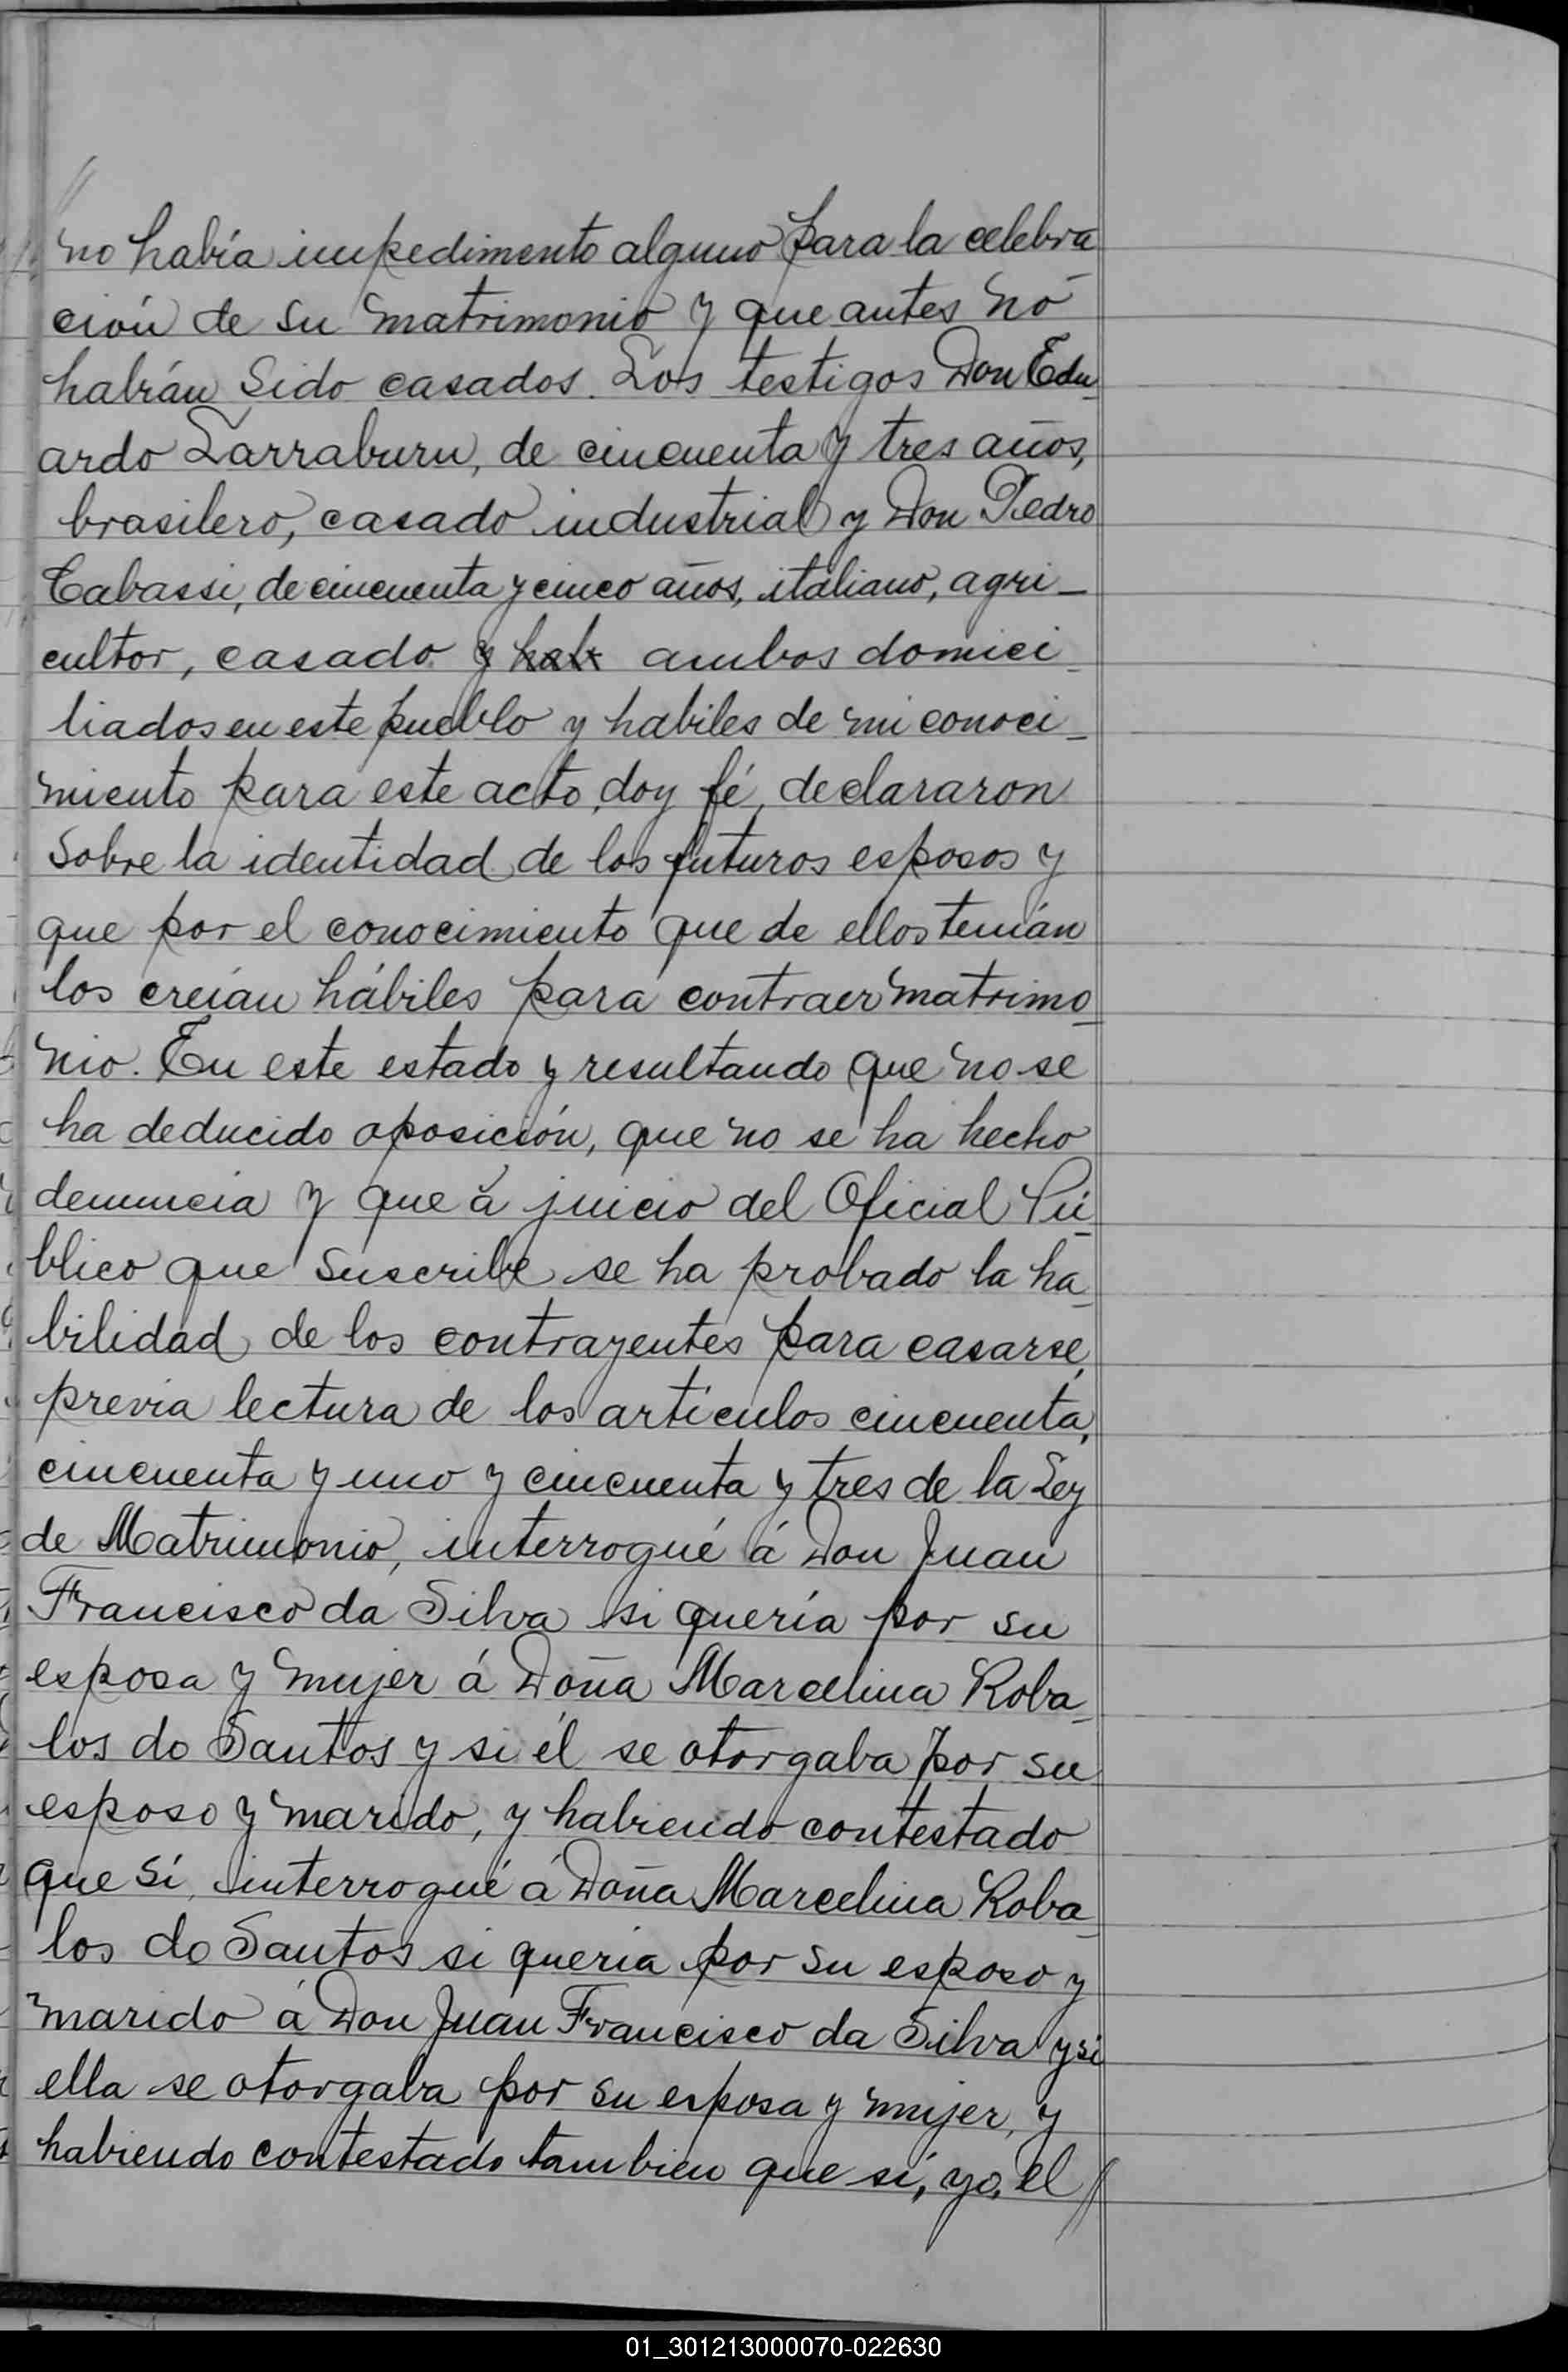 //
no había impedimento alguno para la celebra
ción de su matrimonio y que antes no
habián sido casados. Los testigos Don Edu
ardo Larraburu, de cincuenta y tres años,
brasilero, casado industrial y Don Pedro
Cabassi, de cincuenta y cinco años, italiano, agri_
cultor, casado y hab ambos domici_
liados en este pueblo y habiles de mi conoci_
miento para este acto, doy fé, declararon
sobre la identidad de los futuros esposos y
que por el conocimiento que de ellos tenián
los creían hábiles para contraer matrimo_
nio. En este estado y resultando que no se
ha deducido oposición, que no se ha hecho
denuncia y que á juicio del Oficial Pú_
blico que suscribe se ha probado la ha_
bilidad de los contrayentes para casarse,
previa lectura de los artículos cincuenta,
cincuenta y uno y cincuenta y tres de la Ley
de Matrimonio, interrogué á Don Juan
Francisco da Silva si quería por su
esposa y mujer á Doña Marcelina Roba_
los do Santos y si él se otorgaba por su
esposo y marido, y habiendo contestado
que sí, interrogué á Doña Marcelina Roba_
los do Santos si quería por su esposo y
marido á Don Juan Francisco da Silva y si
ella se otorgaba por su esposa y mujer, y
habiendo contestado tambien que sí, yo, el //
01_301213000070-022630